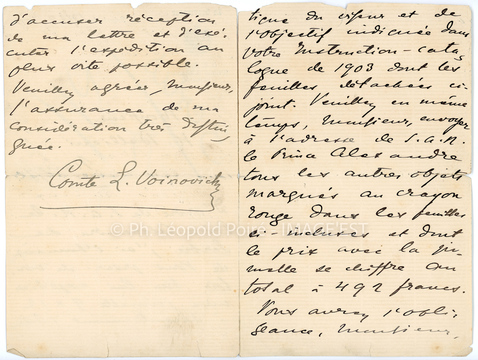 tique du viseur et de
l'objectif indiquée dans
votre Instruction-cata-
logue de 1903 dont les
feuilles détachées ci-
joint. Veuillez en même
temps, Monsieur, envoyer
à l'adresse de S.A.R.
le Prince Alexandre
tous les autres objets
marqués au crayon
rouge dans les feuilles
ci-incluses et dont
le prix avec la ju-
melle se chiffre au
total à 492 francs.
Vous aurez l'obli-
geance, Monsieur,
d'accuser réception
de ma lettre et d'exé-
cuter l'expédition au
plus vite possible.
Veuillez agréer, Monsieur,
l'assurance de ma
considération très distin-
guée.
Comte L. Voinovich
© Ph. Leopold Poiré IMAGE'EST